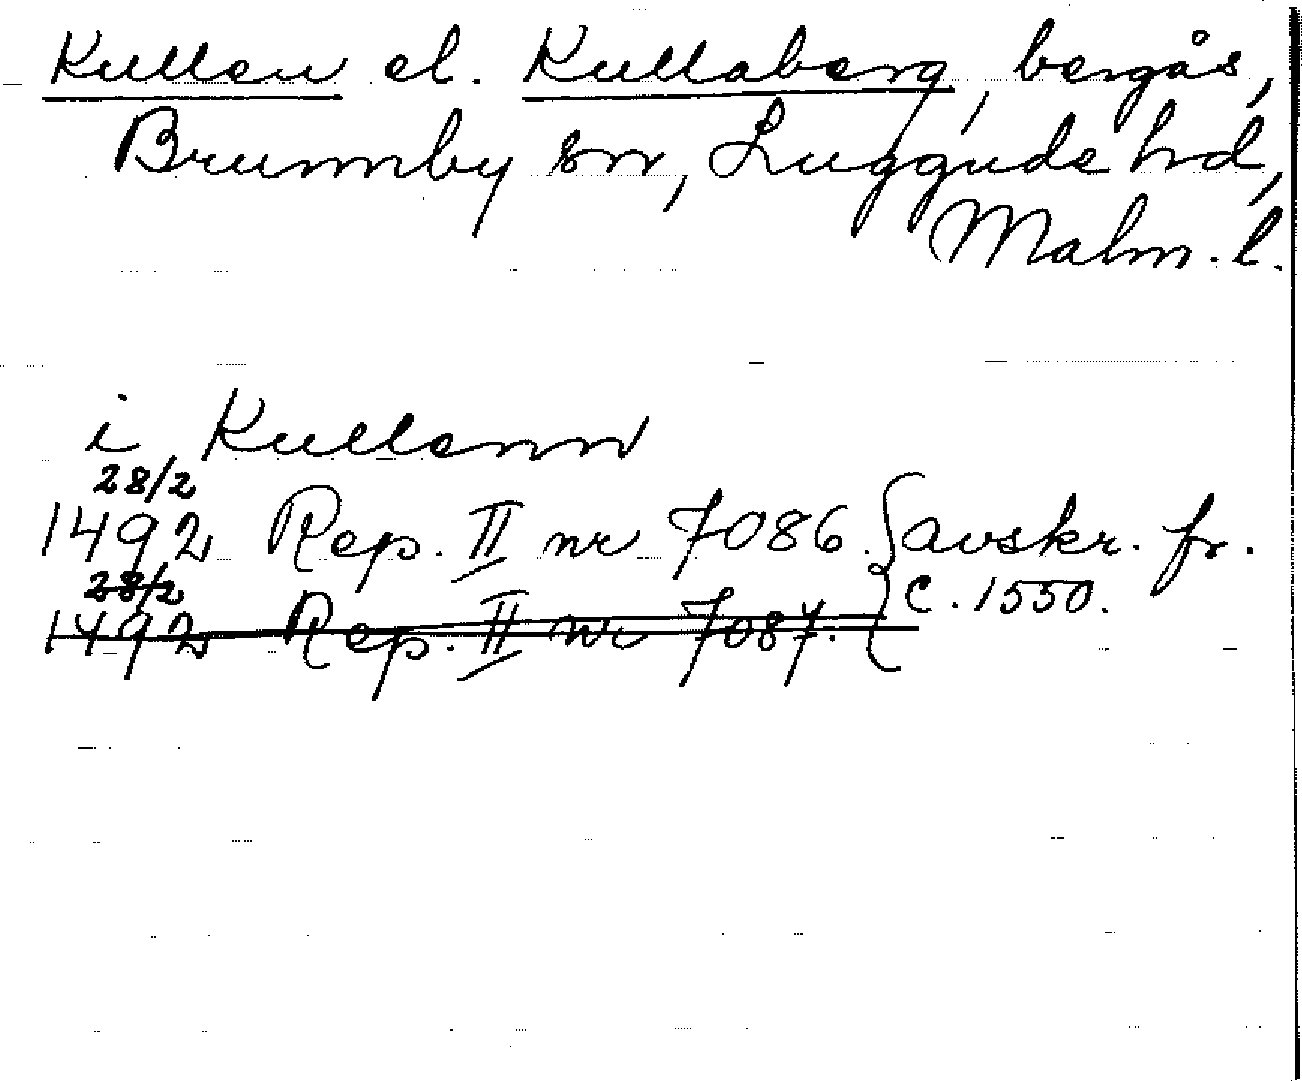 Kullen el. Kullaberg, bergås,
Brunnby sn, Luggude hd,
Malm. l.
i Kullenn
28/2
1492 Rep. II nr 7086. { avskr. fr.
28/2 c. 1550.
1492 Rep. II nr 7087.